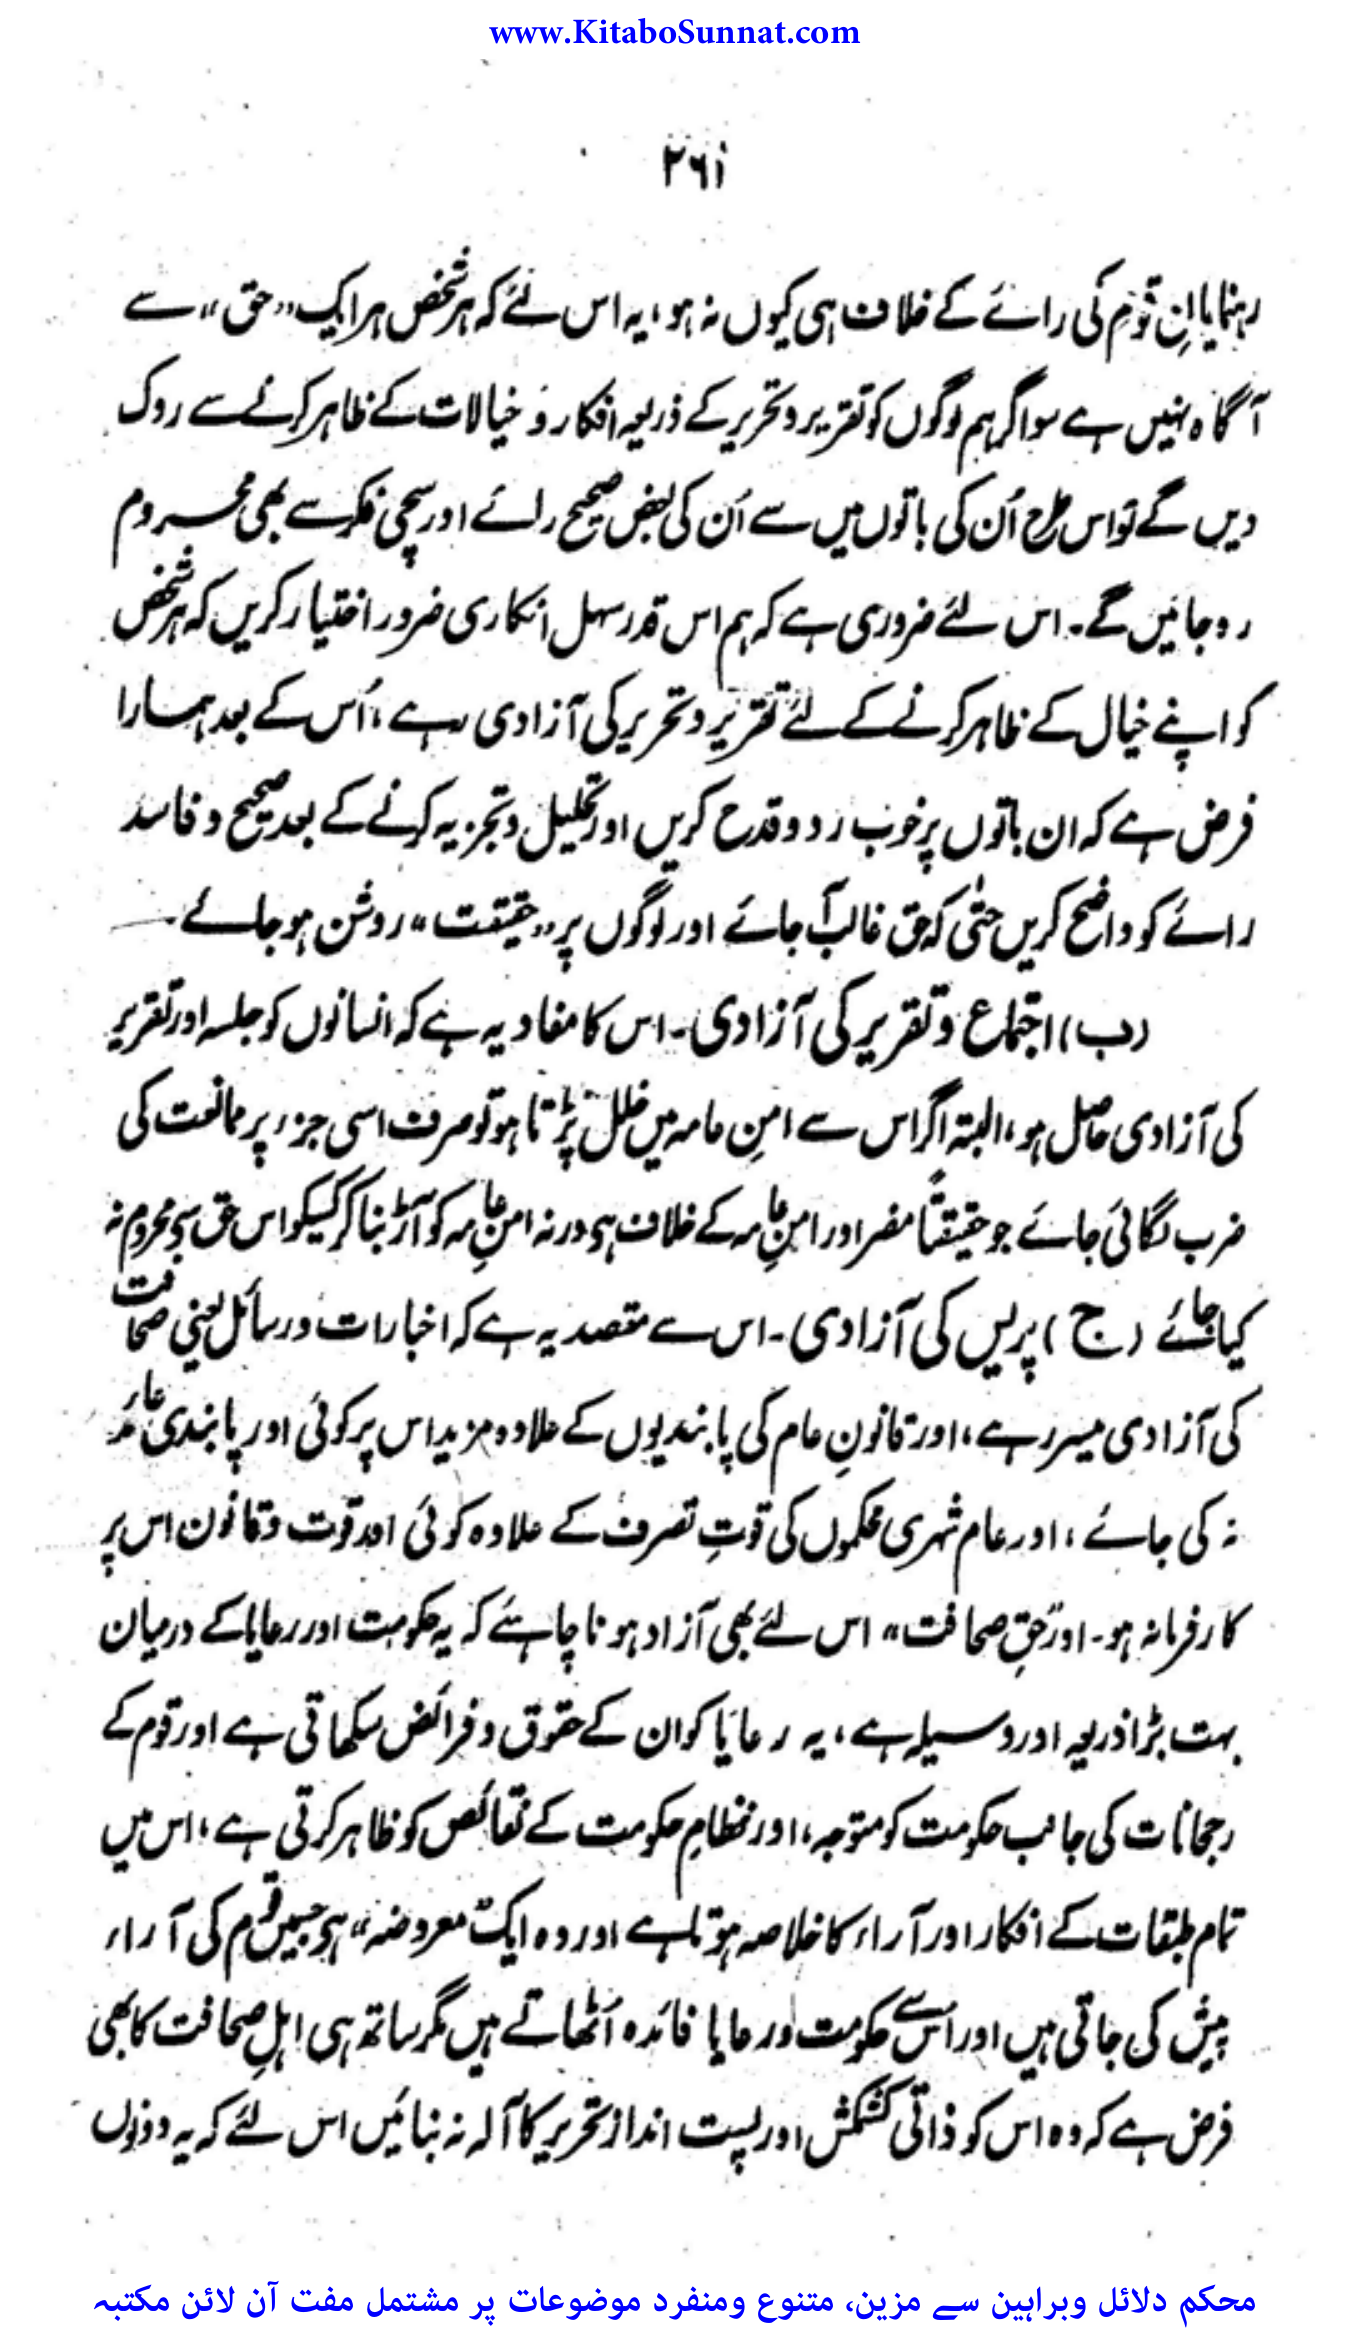 www.KitaboSunnat.com
۲۶۱
رہنمایانِ قوم کی رائے کے خلاف ہی کیوں نہ ہو، یہ اس لئے کہ ہر شخص ہر ایک "حق" سے
آگاہ نہیں ہے سو اگر ہم لوگوں کو تقریر و تحریر کے ذریعہ افکار و خیالات کے ظاہر کرنے سے روک
دیں گے تو اس طرح اُن کی باتوں میں سے اُن کی بعض صحیح رائے اور سچی فکر سے بھی محروم
رہ جائیں گے۔ اس لئے ضروری ہے کہ ہم اس قدر سہل انکاری ضرور اختیار کریں کہ ہر شخص
کو اپنے خیال کے ظاہر کرنے کے لئے تقریر و تحریر کی آزادی رہے، اُس کے بعد ہمارا
فرض ہے کہ ان باتوں پر خوب رد و قدح کریں اور تحلیل و تجزیہ کرنے کے بعد صحیح و فاسد
رائے کو واضح کریں حتیٰ کہ حق غالب آجائے اور لوگوں پر "حقیقت" روشن ہو جائے۔
(ب) اجتماع و تقریر کی آزادی۔ اس کا مفاد یہ ہے کہ انسانوں کو جلسہ اور تقریر
کی آزادی حاصل ہو، البتہ اگر اس سے امنِ عامہ میں خلل پڑتا ہو تو صرف اسی جزر پر ممانعت کی
ضرب لگائی جائے جو حقیقتاً مضر اور امنِ عامہ کے خلاف ہو ورنہ امنِ عامہ کو آڑ بنا کر کسیکو اس حق سے محروم نہ
کیا جائے (ج) پریس کی آزادی۔ اس سے مقصد یہ ہے کہ اخبارات و رسائل یعنی صحافت
کی آزادی میسر رہے، اور قانونِ عام کی پابندیوں کے علاوہ مزید اس پر کوئی اور پابندی عائد
نہ کی جائے، اور عام شہری محکموں کی قوتِ تصرف کے علاوہ کوئی اور قوت و قانون اس پر
کارفرما نہ ہو۔ اور "حقِ صحافت" اس لئے بھی آزاد ہونا چاہئے کہ یہ حکومت اور رعایا کے درمیان
بہت بڑا ذریعہ اور وسیلہ ہے، یہ رعایا کو ان کے حقوق و فرائض سکھاتی ہے اور قوم کے
رجحانات کی جانب حکومت کو متوجہ، اور نظامِ حکومت کے نقائص کو ظاہر کرتی ہے، اس میں
تمام طبقات کے افکار اور آراء کا خلاصہ ہوتا ہے اور وہ ایک "معروضہ" ہے جسمیں قوم کی آراء
پیش کی جاتی ہیں اور اس سے حکومت اور رعایا فائدہ اُٹھاتے ہیں مگر ساتھ ہی اہلِ صحافت کا بھی
فرض ہے کہ وہ اس کو ذاتی کشمکش اور پست اندازِ تحریر کا آلہ نہ بنائیں اس لئے کہ یہ دونوں
محکم دلائل وبراہین سے مزین، متنوع ومنفرد موضوعات پر مشتمل مفت آن لائن مکتبہ